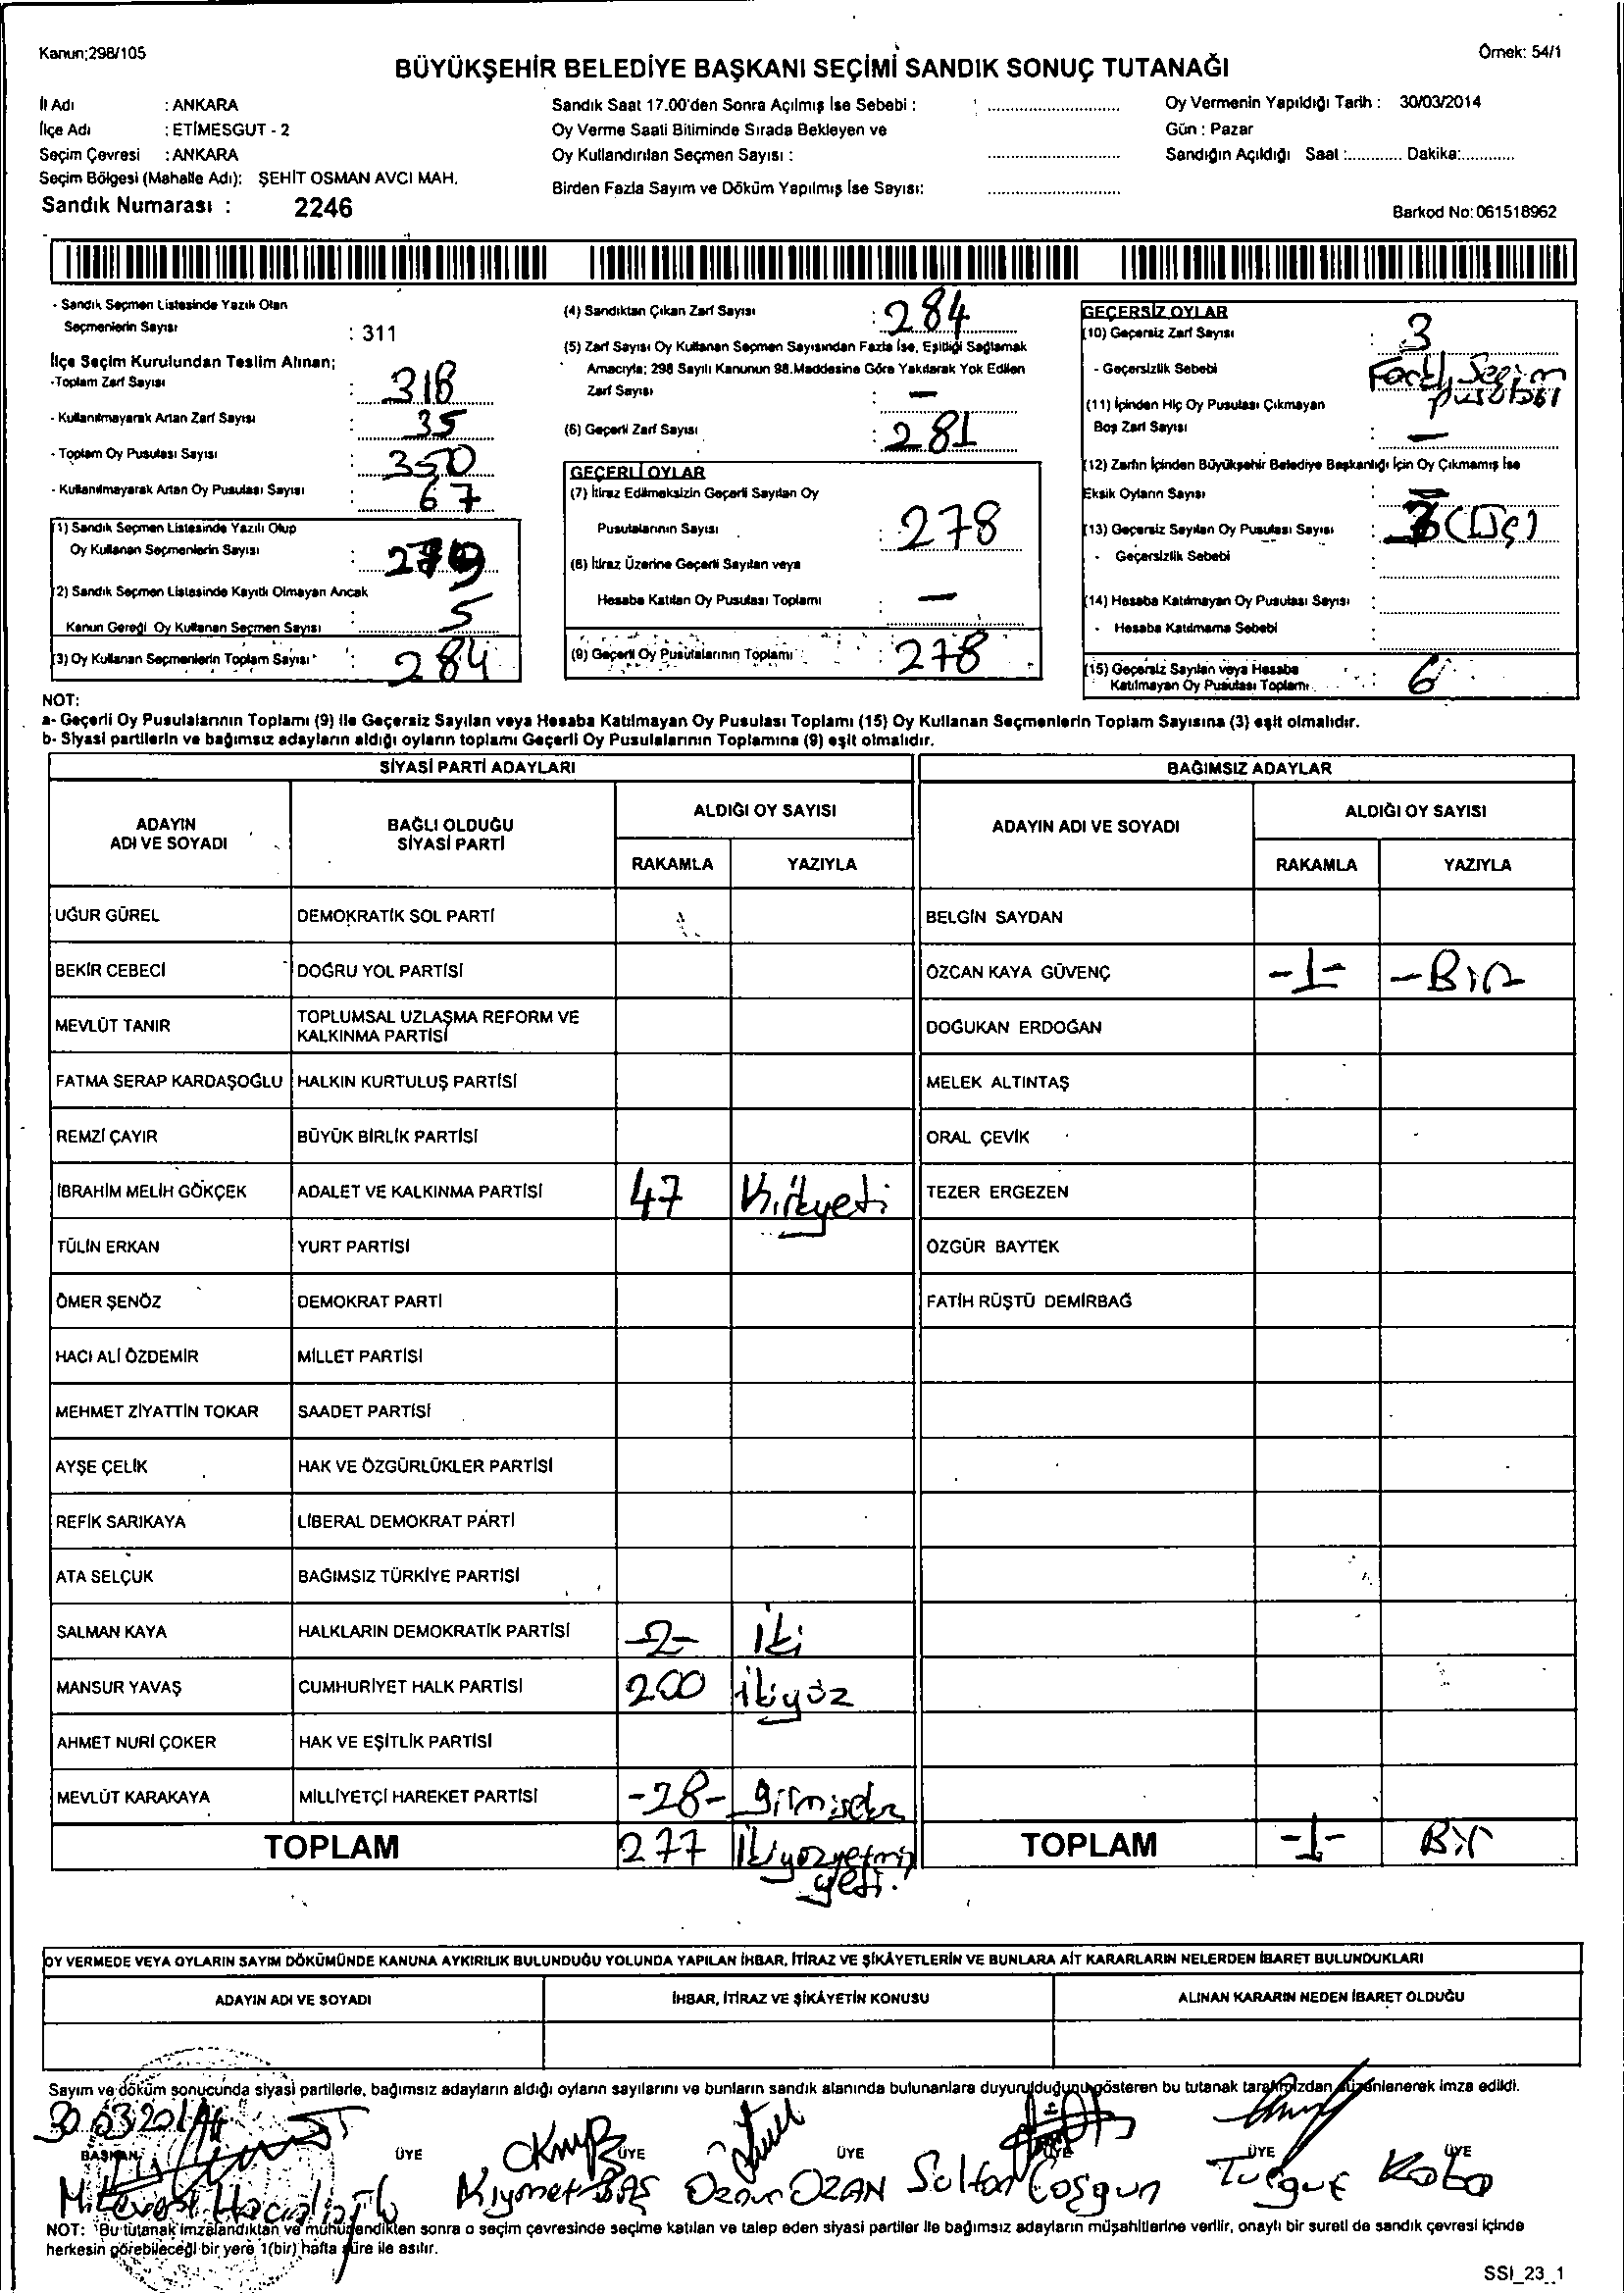 Kanun;298/105
Örnek: 54/1
BÜYÜKŞEHİR BELEDİYE BAŞKANI SEÇİMİ SANDIK SONUÇ TUTANAĞI
İl Adı : ANKARA
İlçe Adı : ETİMESGUT - 2
Seçim Çevresi : ANKARA
Seçim Bölgesi (Mahalle Adı): ŞEHİT OSMAN AVCI MAH.
Sandık Numarası : 2246
Sandık Saat 17.00'den Sonra Açılmış İse Sebebi :
Oy Verme Saati Bitiminde Sırada Bekleyen ve
Oy Kullandırılan Seçmen Sayısı :
Birden Fazla Sayım ve Döküm Yapılmış İse Sayısı:
Oy Vermenin Yapıldığı Tarih : 30/03/2014
Gün : Pazar
Sandığın Açıldığı Saat :............ Dakika:............
Barkod No: 061518962
- Sandık Seçmen Listesinde Yazılı Olan
Seçmenlerin Sayısı : 311
İlçe Seçim Kurulundan Teslim Alınan;
-Toplam Zarf Sayısı : 318
- Kullanılmayarak Artan Zarf Sayısı : 35
- Toplam Oy Pusulası Sayısı : 350
- Kullanılmayarak Artan Oy Pusulası Sayısı : 67
(1) Sandık Seçmen Listesinde Yazılı Olup
Oy Kullanan Seçmenlerin Sayısı : 279
(2) Sandık Seçmen Listesinde Kayıtlı Olmayan Ancak
Kanun Gereği Oy Kullanan Seçmen Sayısı : 5
(3) Oy Kullanan Seçmenlerin Toplam Sayısı : 284
(4) Sandıktan Çıkan Zarf Sayısı : 284
(5) Zarf Sayısı Oy Kullanan Seçmen Sayısından Fazla İse, Eşitliği Sağlamak
Amacıyla; 298 Sayılı Kanunun 98.Maddesine Göre Yakılarak Yok Edilen
Zarf Sayısı : —
(6) Geçerli Zarf Sayısı : 281
GEÇERLİ OYLAR
(7) İtiraz Edilmeksizin Geçerli Sayılan Oy
Pusulalarının Sayısı : 278
(8) İtiraz Üzerine Geçerli Sayılan veya
Hesaba Katılan Oy Pusulası Toplamı : —
(9) Geçerli Oy Pusulalarının Toplamı : 278
GEÇERSİZ OYLAR
(10) Geçersiz Zarf Sayısı : 3
- Geçersizlik Sebebi : Farklı Seçim
pusulası
(11) İçinden Hiç Oy Pusulası Çıkmayan
Boş Zarf Sayısı : —
(12) Zarfın İçinden Büyükşehir Belediye Başkanlığı İçin Oy Çıkmamış İse
Eksik Oyların Sayısı : —
(13) Geçersiz Sayılan Oy Pusulası Sayısı : 3 (Üç)
- Geçersizlik Sebebi :
(14) Hesaba Katılmayan Oy Pusulası Sayısı :
- Hesaba Katılmama Sebebi :
(15) Geçersiz Sayılan veya Hesaba
Katılmayan Oy Pusulası Toplamı : 6
NOT:
a- Geçerli Oy Pusulalarının Toplamı (9) ile Geçersiz Sayılan veya Hesaba Katılmayan Oy Pusulası Toplamı (15) Oy Kullanan Seçmenlerin Toplam Sayısına (3) eşit olmalıdır.
b- Siyasi partilerin ve bağımsız adayların aldığı oyların toplamı Geçerli Oy Pusulalarının Toplamına (9) eşit olmalıdır.
SİYASİ PARTİ ADAYLARI
BAĞIMSIZ ADAYLAR
ADAYIN ADI VE SOYADI
BAĞLI OLDUĞU SİYASİ PARTİ
ALDIĞI OY SAYISI
RAKAMLA YAZIYLA
ADAYIN ADI VE SOYADI
ALDIĞI OY SAYISI
RAKAMLA YAZIYLA
UĞUR GÜREL DEMOKRATİK SOL PARTİ BELGİN SAYDAN
BEKİR CEBECİ DOĞRU YOL PARTİSİ ÖZCAN KAYA GÜVENÇ -1- -Bir
MEVLÜT TANIR TOPLUMSAL UZLAŞMA REFORM VE KALKINMA PARTİSİ DOĞUKAN ERDOĞAN
FATMA SERAP KARDAŞOĞLU HALKIN KURTULUŞ PARTİSİ MELEK ALTINTAŞ
REMZİ ÇAYIR BÜYÜK BİRLİK PARTİSİ ORAL ÇEVİK
İBRAHİM MELİH GÖKÇEK ADALET VE KALKINMA PARTİSİ 47 Kırkyedi TEZER ERGEZEN
TÜLİN ERKAN YURT PARTİSİ ÖZGÜR BAYTEK
ÖMER ŞENÖZ DEMOKRAT PARTİ FATİH RÜŞTÜ DEMİRBAĞ
HACI ALİ ÖZDEMİR MİLLET PARTİSİ
MEHMET ZİYATTİN TOKAR SAADET PARTİSİ
AYŞE ÇELİK HAK VE ÖZGÜRLÜKLER PARTİSİ
REFİK SARIKAYA LİBERAL DEMOKRAT PARTİ
ATA SELÇUK BAĞIMSIZ TÜRKİYE PARTİSİ
SALMAN KAYA HALKLARIN DEMOKRATİK PARTİSİ -2- iki
MANSUR YAVAŞ CUMHURİYET HALK PARTİSİ 200 ikiyüz
AHMET NURİ ÇOKER HAK VE EŞİTLİK PARTİSİ
MEVLÜT KARAKAYA MİLLİYETÇİ HAREKET PARTİSİ -28-
TOPLAM 277 ikiyüzyetmiş TOPLAM -1- Bir
yedi.
OY VERMEDE VEYA OYLARIN SAYIM DÖKÜMÜNDE KANUNA AYKIRILIK BULUNDUĞU YOLUNDA YAPILAN İHBAR, İTİRAZ VE ŞİKÂYETLERİN VE BUNLARA AİT KARARLARIN NELERDEN İBARET BULUNDUKLARI
ADAYIN ADI VE SOYADI
İHBAR, İTİRAZ VE ŞİKÂYETİN KONUSU
ALINAN KARARIN NEDEN İBARET OLDUĞU
Sayım ve döküm sonucunda siyasi partilerle, bağımsız adayların aldığı oyların sayılarını ve bunların sandık alanında bulunanlara duyurulduğunu gösteren bu tutanak tarafımızdan düzenlenerek imza edildi.
30.03.2014
BAŞKAN ÜYE ÜYE ÜYE ÜYE ÜYE ÜYE
Kıymet BAŞ Özan OZAN Sultan Coşgun Turgut Kaba
NOT: Bu tutanak imzalandıktan ve mühürlendikten sonra o seçim çevresinde seçime katılan ve talep eden siyasi partiler ile bağımsız adayların müşahitlerine verilir, onaylı bir sureti de sandık çevresi içinde
herkesin görebileceği bir yere 1(bir) hafta süre ile asılır.
SSI_23_1